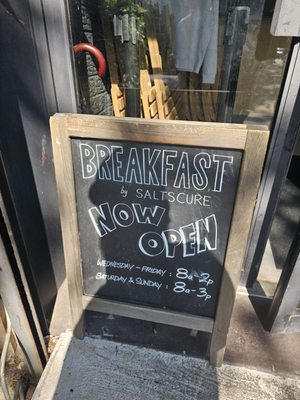 BREAKFAST
by SALT'S CURE
NOW
OPEN
WEDNESDAY - FRIDAY : 8a-2p
SATURDAY & SUNDAY : 8a-3p